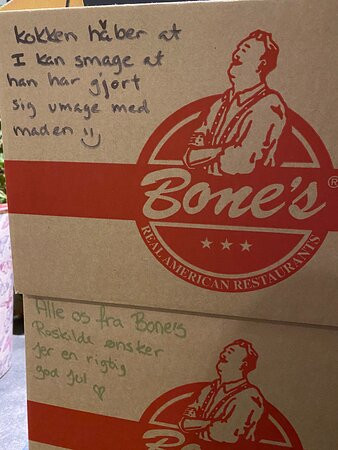 Kokken håber at
I kan smage at
han har gjort
sig umage med
maden :)
Bone's®
REAL AMERICAN RESTAURANTS
Alle os fra Bones
Roskilde ønsker
jer en rigtig
god jul ♡